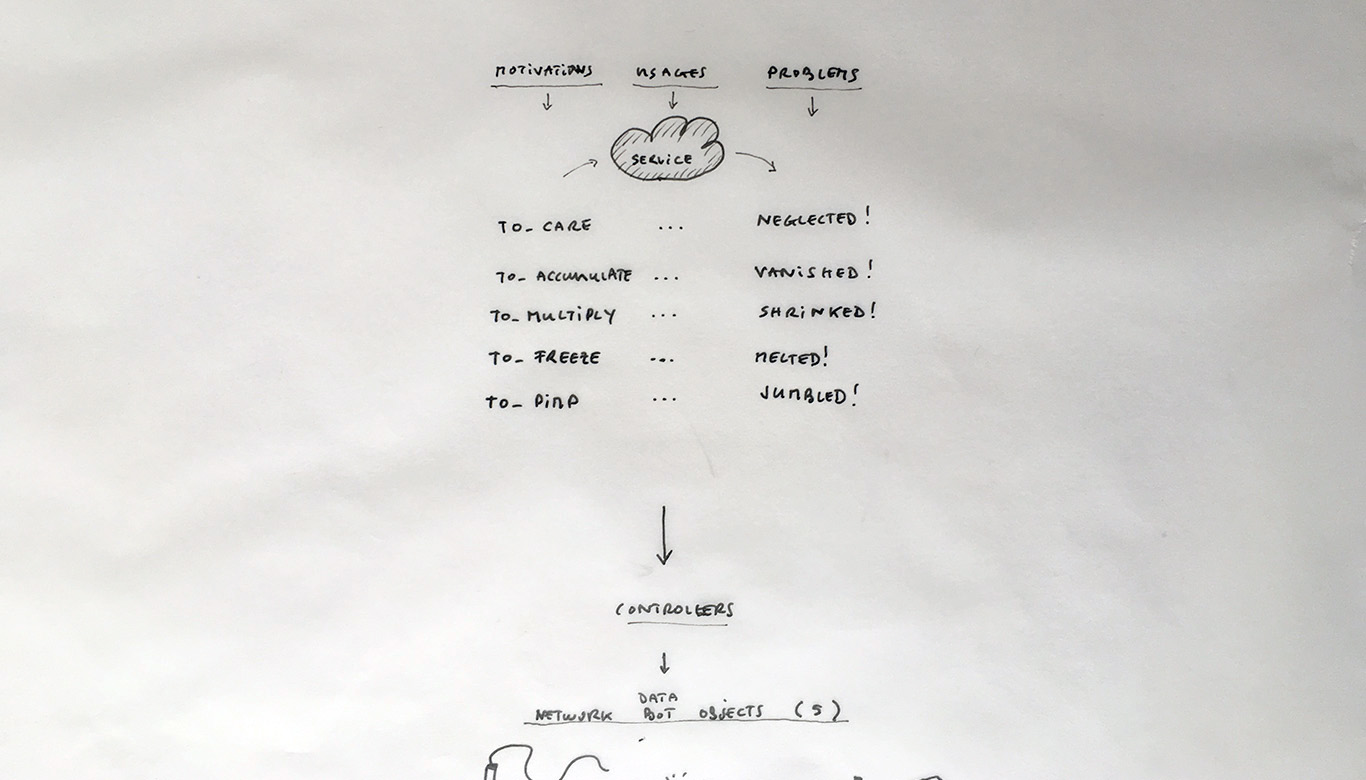 MOTIVATIONS USAGES PROBLEMS
SERVICE
TO_ CARE ... NEGLECTED!
TO_ ACCUMULATE ... VANISHED!
TO_ MULTIPLY ... SHRINKED!
TO_ FREEZE ... MELTED!
TO_ PIMP ... JUMBLED!
CONTROLLERS
DATA
NETWORK BOT OBJECTS (5)